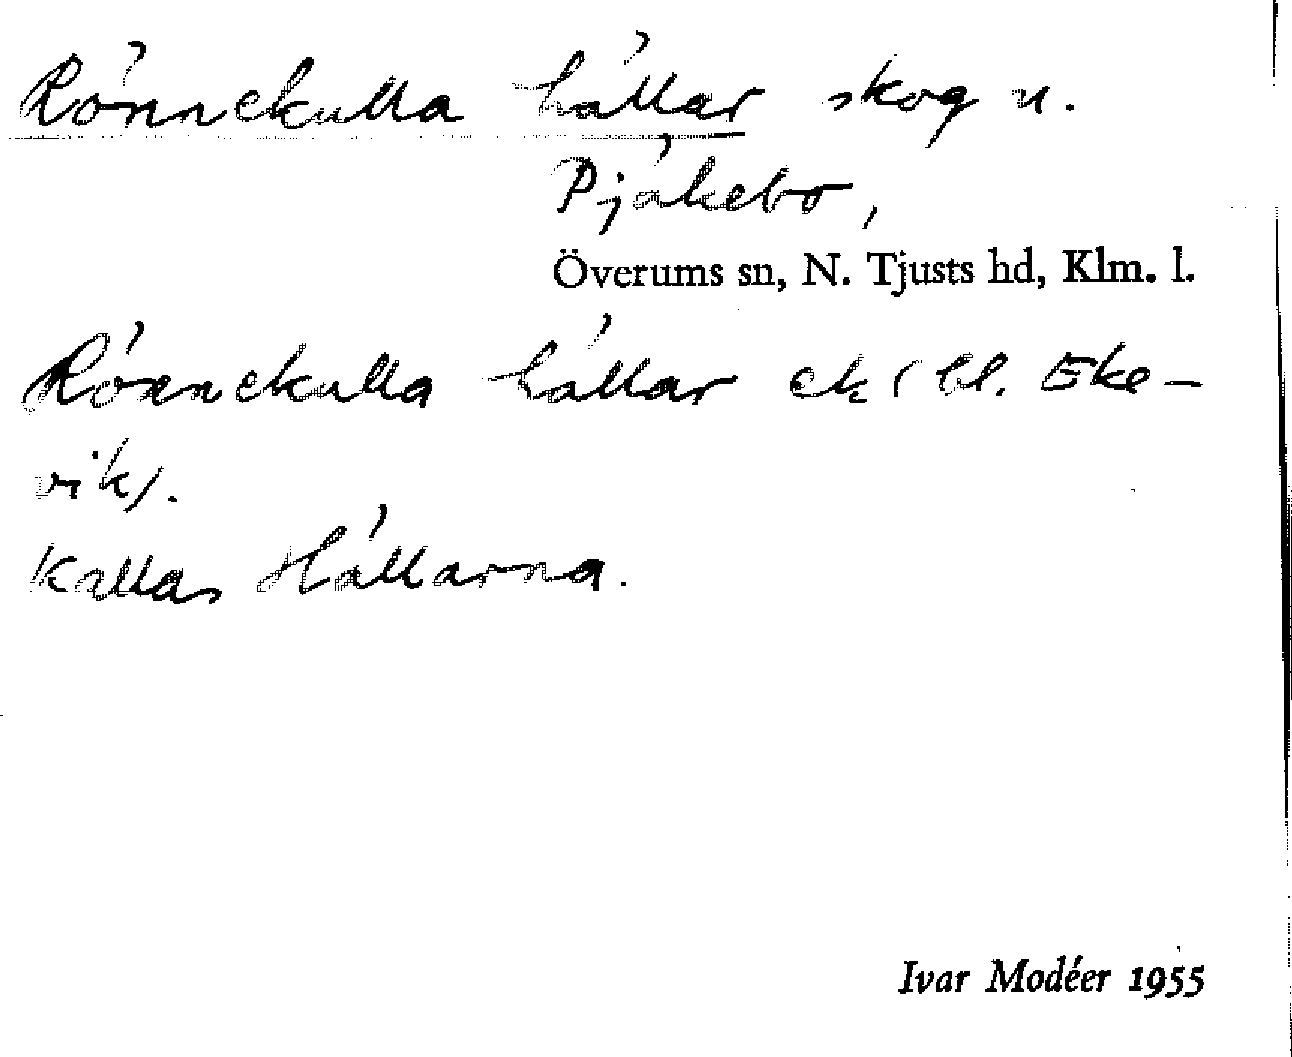 Rönnekulla hällar skog u.
Pjäkebo,
Överums sn, N. Tjusts hd, Klm. l.
Rönnekulla hällar ek ( bl. Eke-
vik).
Kallas Hällarna.
Ivar Modéer 1955